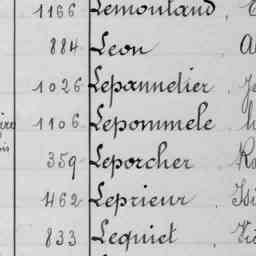 1166 Lemoutand
884 Leon A
1026 Lepannetier Je
1106 Lepommele
359 Leporcher Ra
462 Leprieur Isi
833 Lequiet Vic